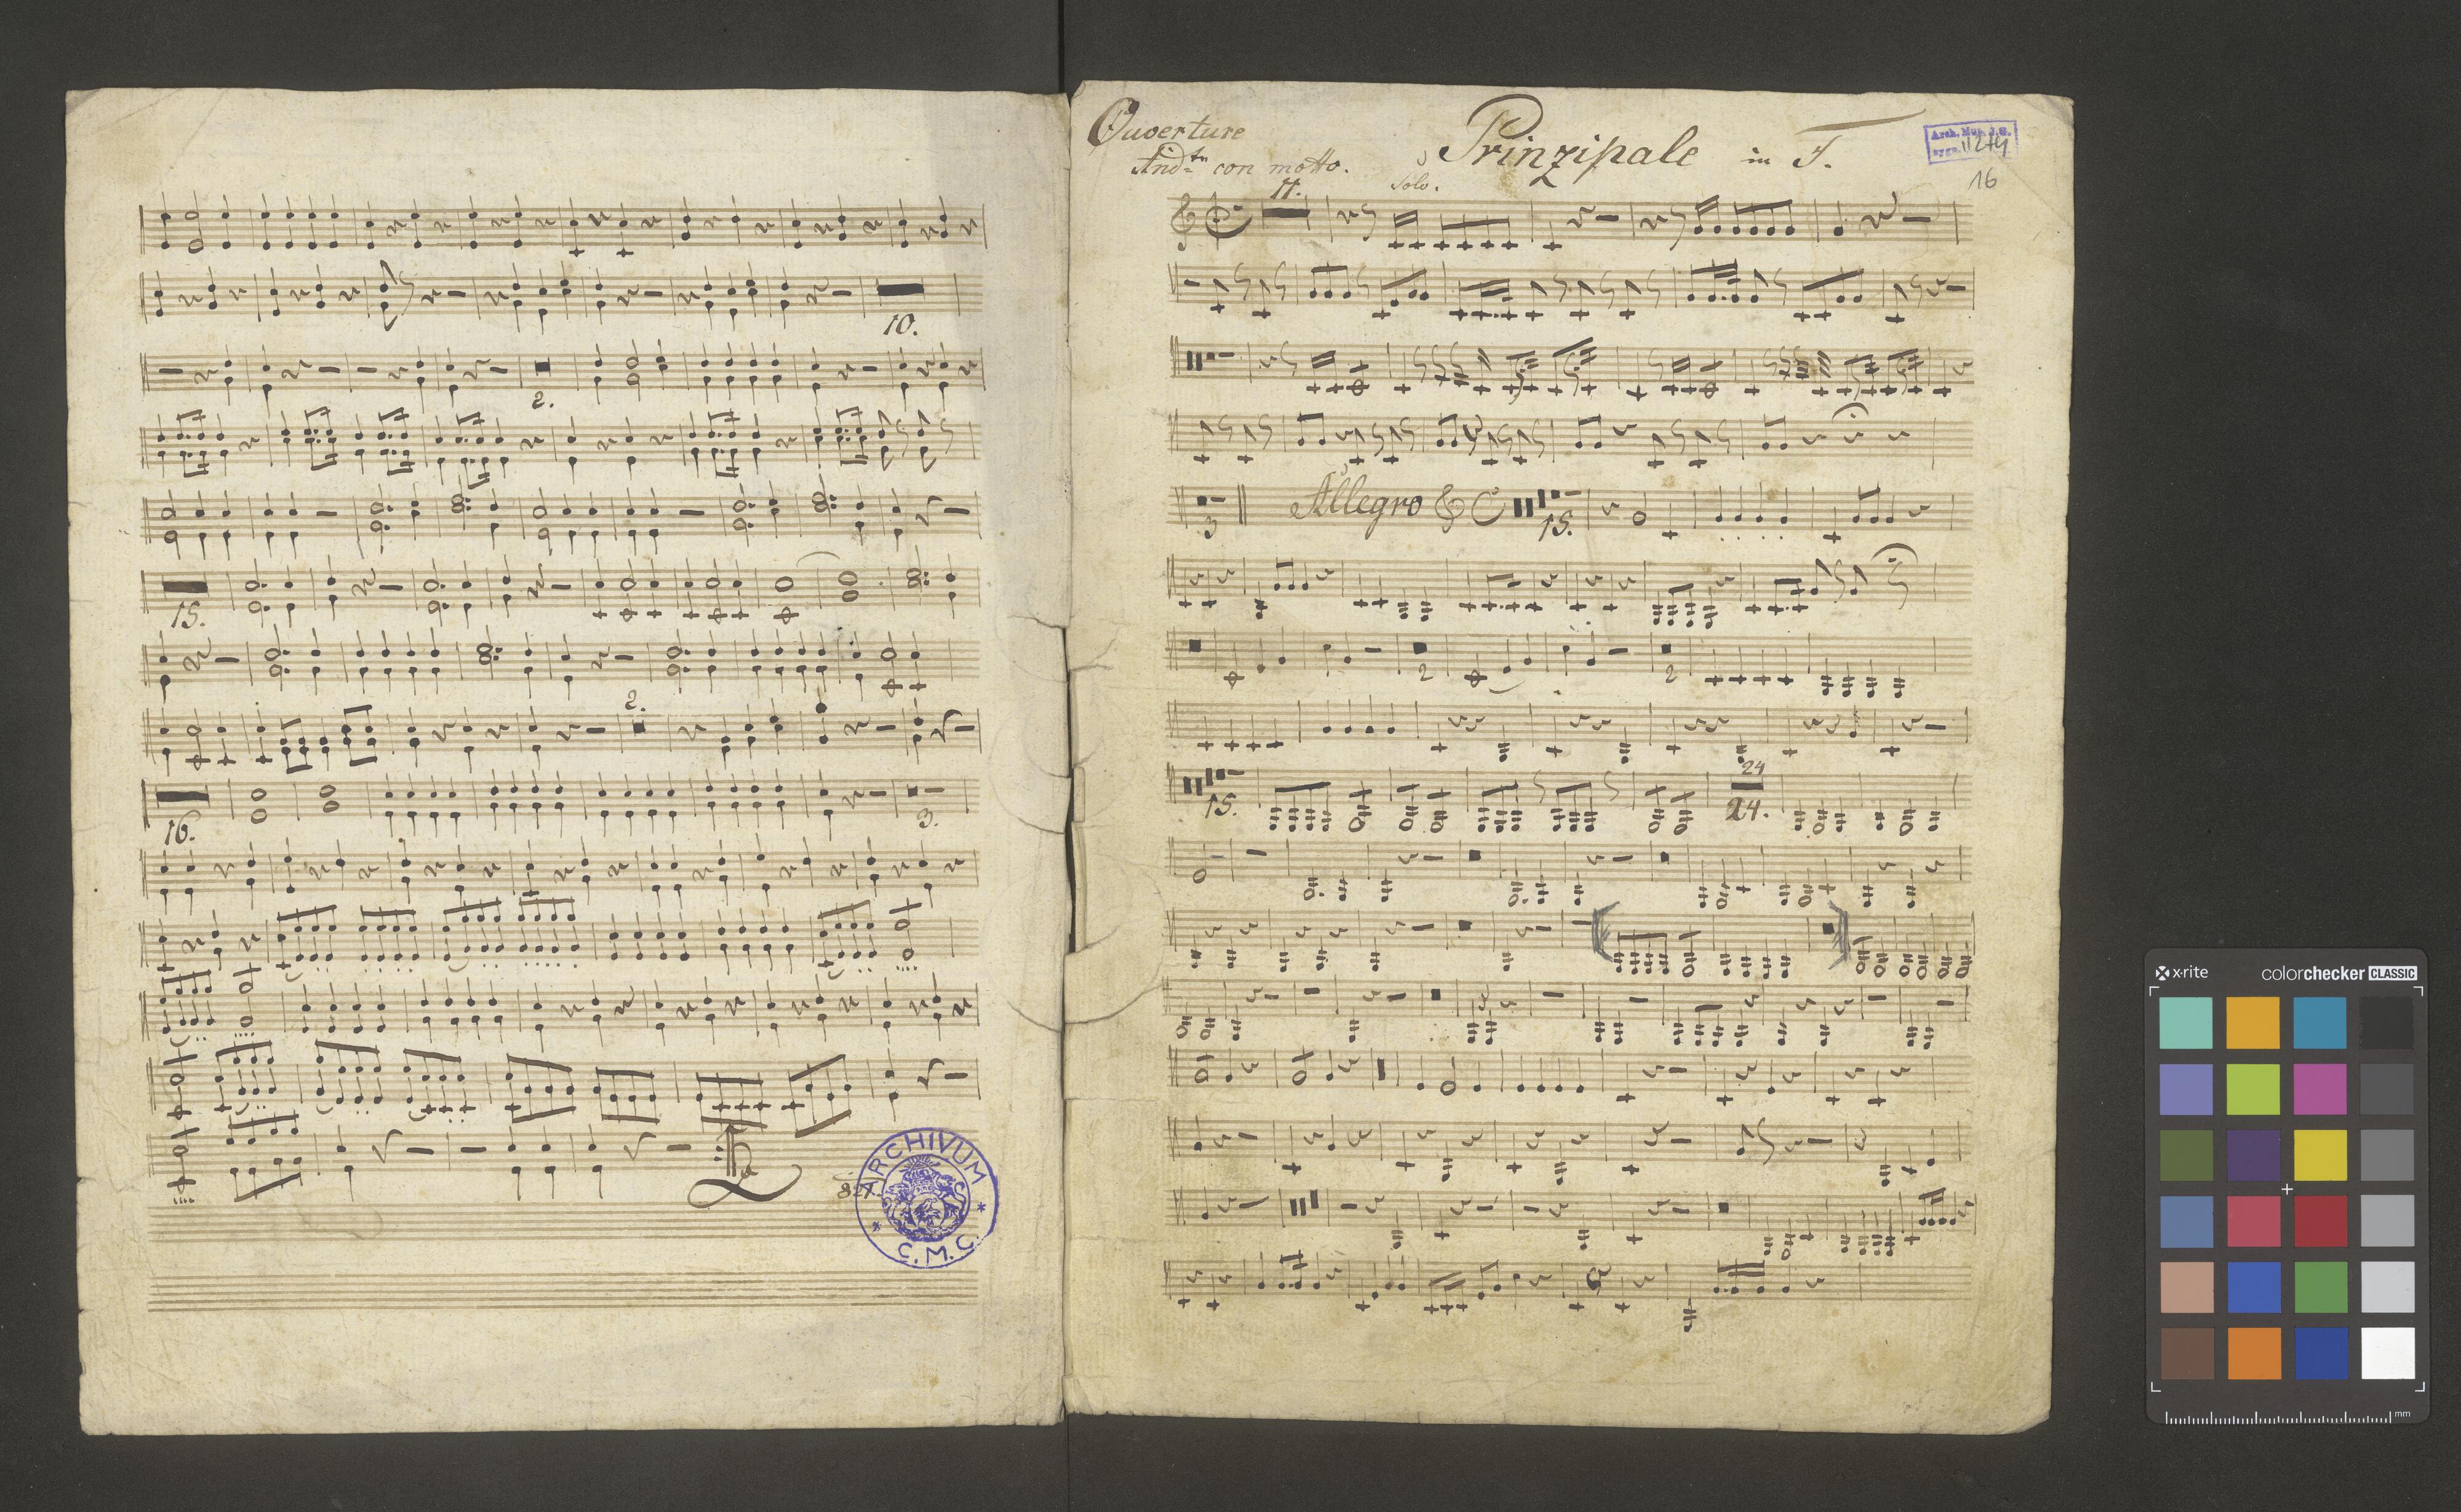 10.
2.
15.
2.
16.
3.
ARCHIVUM
C. M. C.
Ouverture
Prinzipale in F.
Andtn con motto.
Solo.
Arch. Muz. J.G.
sygn. II 274
16
3
Allegro
15.
2
2
15.
24
24.
x·rite
colorchecker CLASSIC
mm